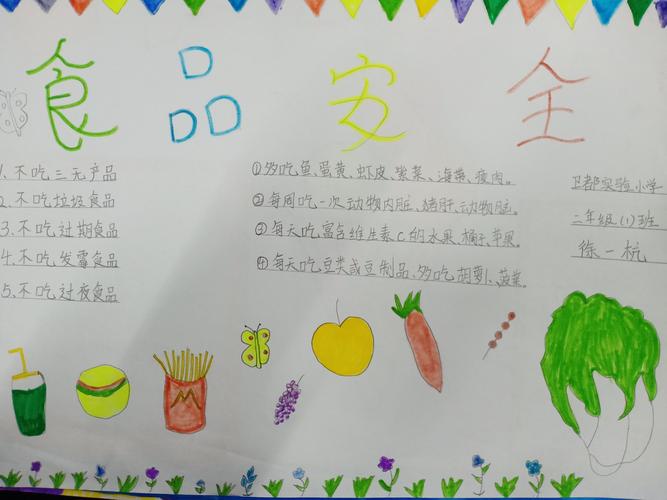 食品安全
1、不吃三无产品
2、不吃垃圾食品
3、不吃过期食品
4、不吃发霉食品
5、不吃过夜食品
①多吃鱼、蛋黄、虾皮、紫菜、海带、瘦肉。
②每周吃一次动物内脏、猪肝、动物脏。
③每天吃富含维生素C的水果、橘子、苹果。
④每天吃豆类或豆制品、多吃胡萝、菠菜。
卫都实验小学
二年级(1)班
徐一杭
M